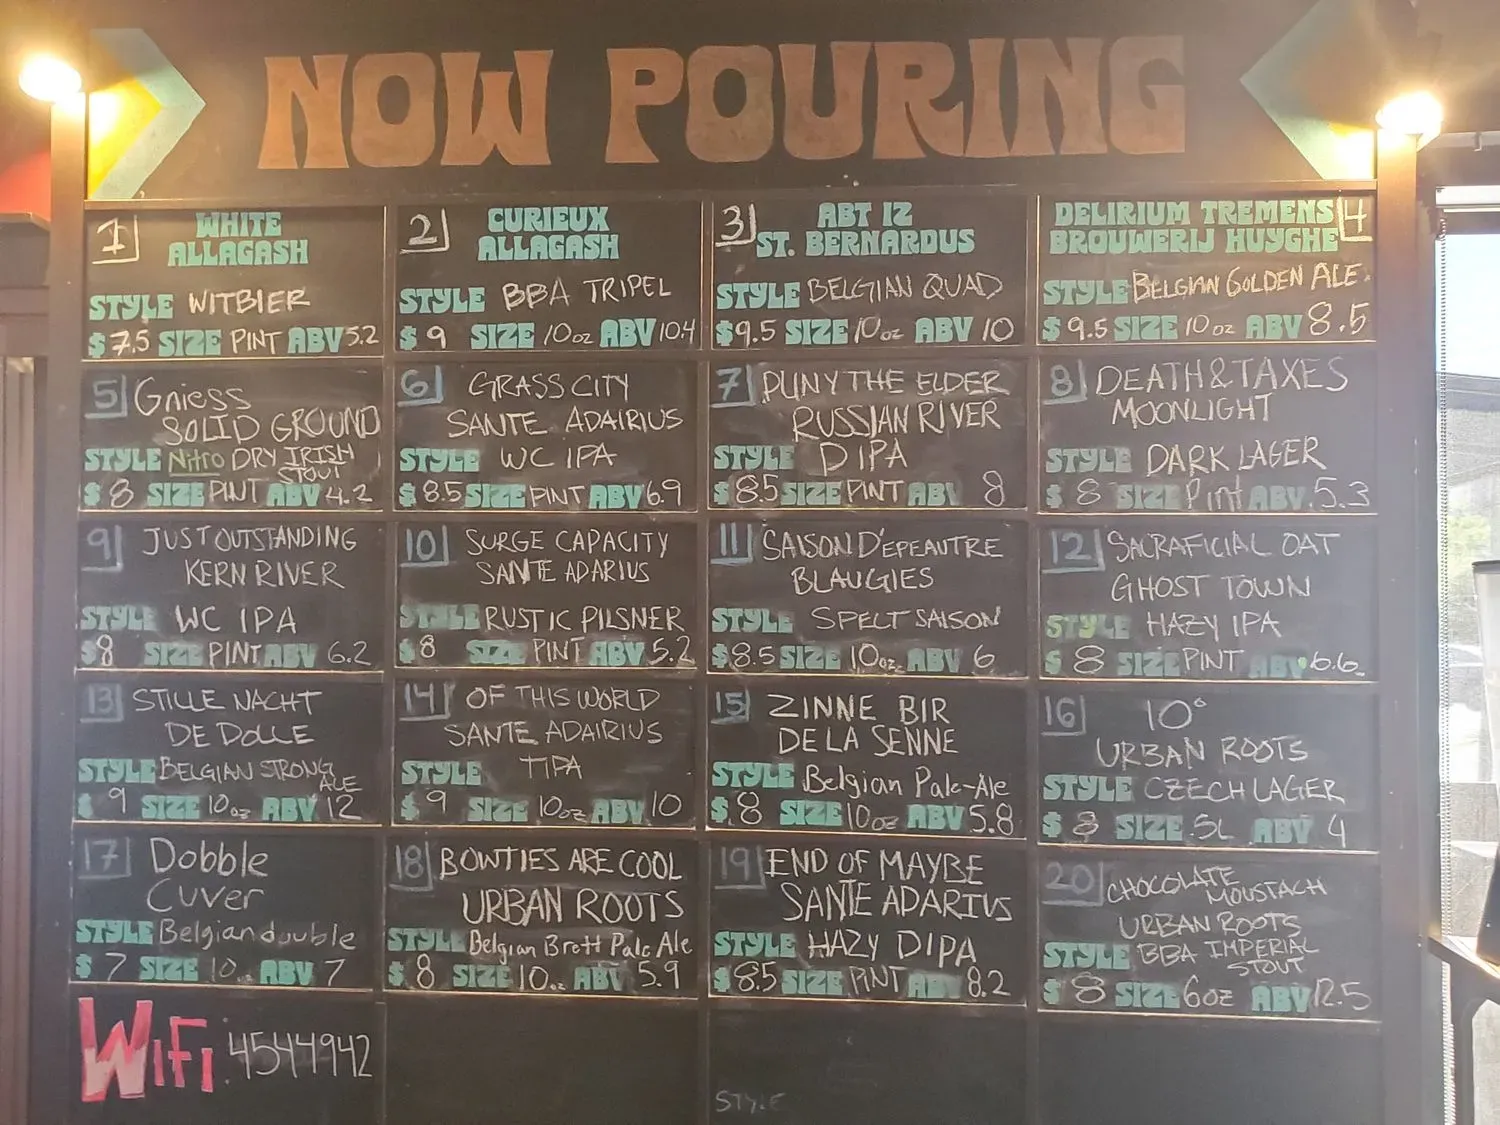 NOW POURING
1 WHITE
ALLAGASH
STYLE WITBIER
$ 7.5 SIZE PINT ABV 5.2
2 CURIEUX
ALLAGASH
STYLE BBA TRIPEL
$ 9 SIZE 10oz ABV 10.4
3 ABT 12
ST. BERNARDUS
STYLE BELGIAN QUAD
$9.5 SIZE 10oz ABV 10
DELIRIUM TREMENS 4
BROUWERIJ HUYGHE
STYLE BELGIAN GOLDEN ALE
$ 9.5 SIZE 10oz ABV 8.5
5 Gniess
SOLID GROUND
STYLE Nitro DRY IRISH
STOUT
$ 8 SIZE PINT ABV 4.2
6 GRASS CITY
SANTE ADAIRIUS
STYLE WC IPA
$ 8.5 SIZE PINT ABV 6.9
7 PLINY THE ELDER
RUSSIAN RIVER
STYLE DIPA
$ 8.5 SIZE PINT ABV 8
8 DEATH & TAXES
MOONLIGHT
STYLE DARK LAGER
$ 8 SIZE Pint ABV 5.3
9 JUST OUTSTANDING
KERN RIVER
STYLE WC IPA
$8 SIZE PINT ABV 6.2
10 SURGE CAPACITY
SANTE ADARIUS
STYLE RUSTIC PILSNER
$8 SIZE PINT ABV 5.2
11 SAISON D'EPEAUTRE
BLAUGIES
STYLE SPELT SAISON
$8.5 SIZE 10oz ABV 6
12 SACRAFICIAL OAT
GHOST TOWN
STYLE HAZY IPA
$ 8 SIZE PINT ABV 6.6
13 STILLE NACHT
DE DOLLE
STYLE BELGIAN STRONG
ALE
$ 9 SIZE 10oz ABV 12
14 OF THIS WORLD
SANTE ADAIRIUS
STYLE TIPA
$ 9 SIZE 10oz ABV 10
15 ZINNE BIR
DE LA SENNE
STYLE Belgian Pale-Ale
$ 8 SIZE 10oz ABV 5.8
16 10°
URBAN ROOTS
STYLE CZECH LAGER
$ 8 SIZE .5L ABV 4
17 Dobble
Cuver
STYLE Belgian double
$ 7 SIZE 10oz ABV 7
18 BOWTIES ARE COOL
URBAN ROOTS
STYLE Belgian Brett Pale Ale
$ 8 SIZE 10oz ABV 5.9
19 END OF MAYBE
SANTE ADARIUS
STYLE HAZY DIPA
$8.5 SIZE PINT ABV 8.2
20 CHOCOLATE
MOUSTACH
URBAN ROOTS
STYLE BBA IMPERIAL
STOUT
$ 8 SIZE 6oz ABV 12.5
WiFi 4544942
STYLE